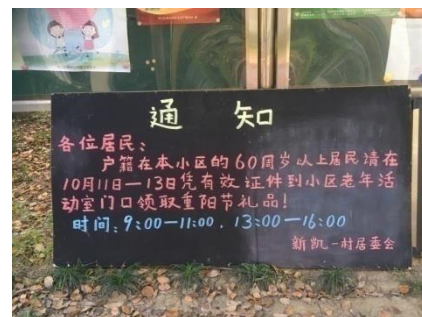 通 知
各位居民：
户籍在本小区的60周岁以上居民请在
10月11日—13日凭有效证件到小区老年活
动室门口领取重阳节礼品！
时间：9:00—11:00．13:00—16:00
新凯一村居委会